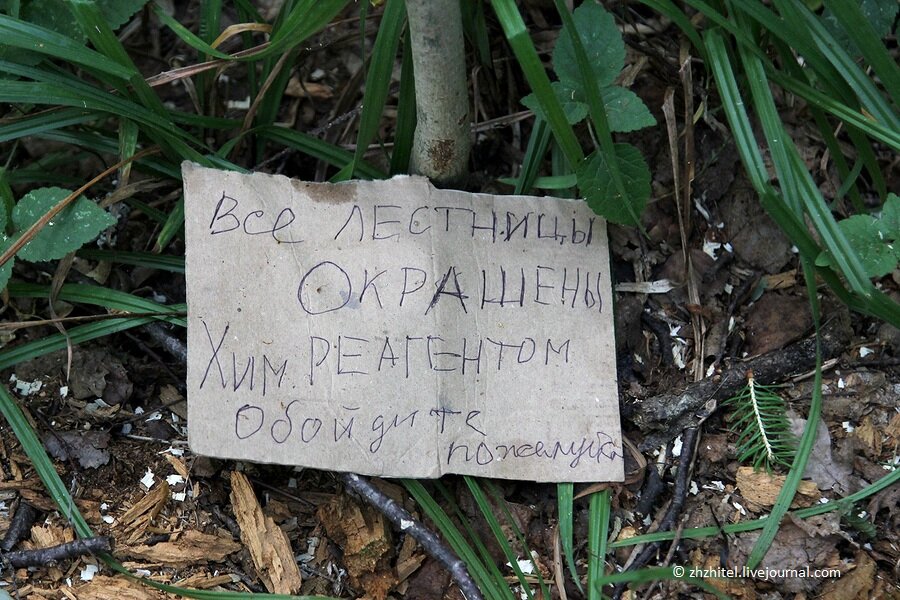 Все ЛЕСТНИЦЫ
ОКРАШЕНЫ
Хим. РЕАГЕНТОМ
Обойдите
пожалуйста
© zhzhitel.livejournal.com